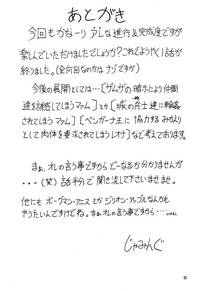 あとがき
今回もかなーりクドい進行&完成度ですが
楽しんでいただけましたでしょうか?これでようやく1話が
終りました。(全何回なのかはナゾですが)
今後の展開としては…[ザムザの暗示により仲間
達を
されてしまうマァム][城の兵士達に輪姦
されてしまうマァム][ベンガーナ王に協力するみなり
として肉体を要求されてしまうレオナ]など考えております。
まぁ、オレの言う事ですからどーなるか分かりませんが
…(笑)話半分で聞き流して下さいませ。
他にもボーグマン・アニスとかジリオン・アップルなんかも
やりたいんですけどね。まぁオレの言う事ですから……
じゃみんぐ